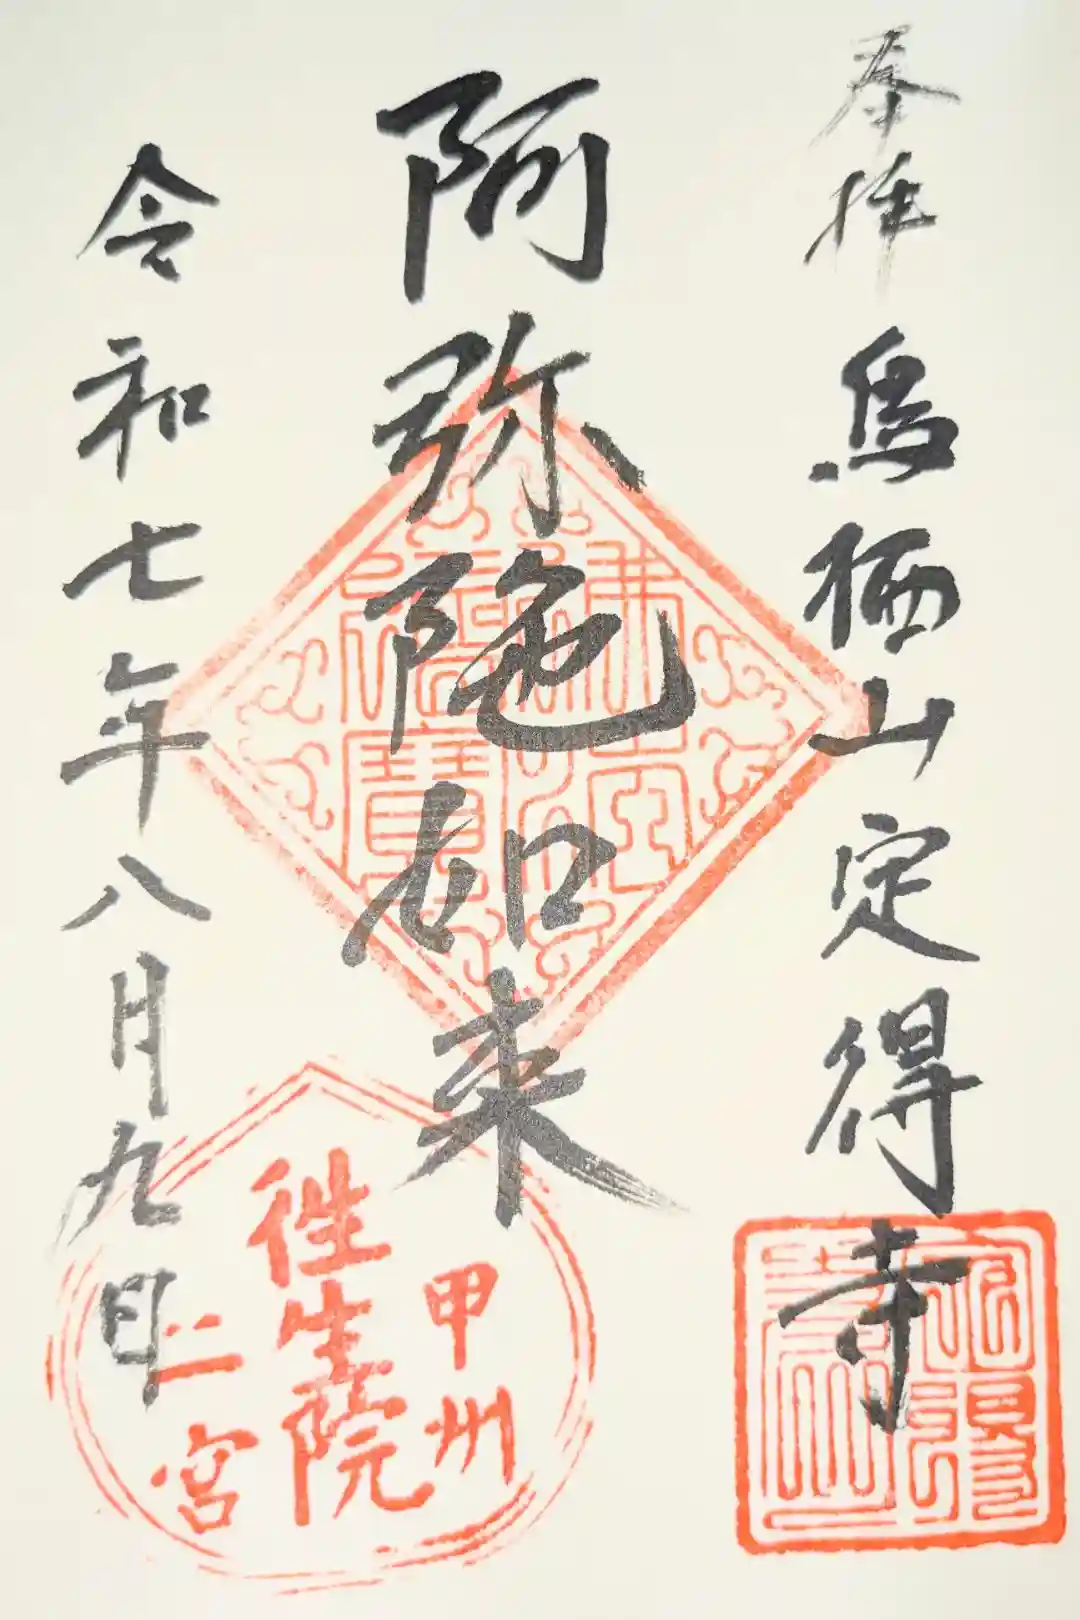 奉拝 鳥栖山定得寺
阿弥陀如来
令和七年八月九日
甲州
往生院
二宮